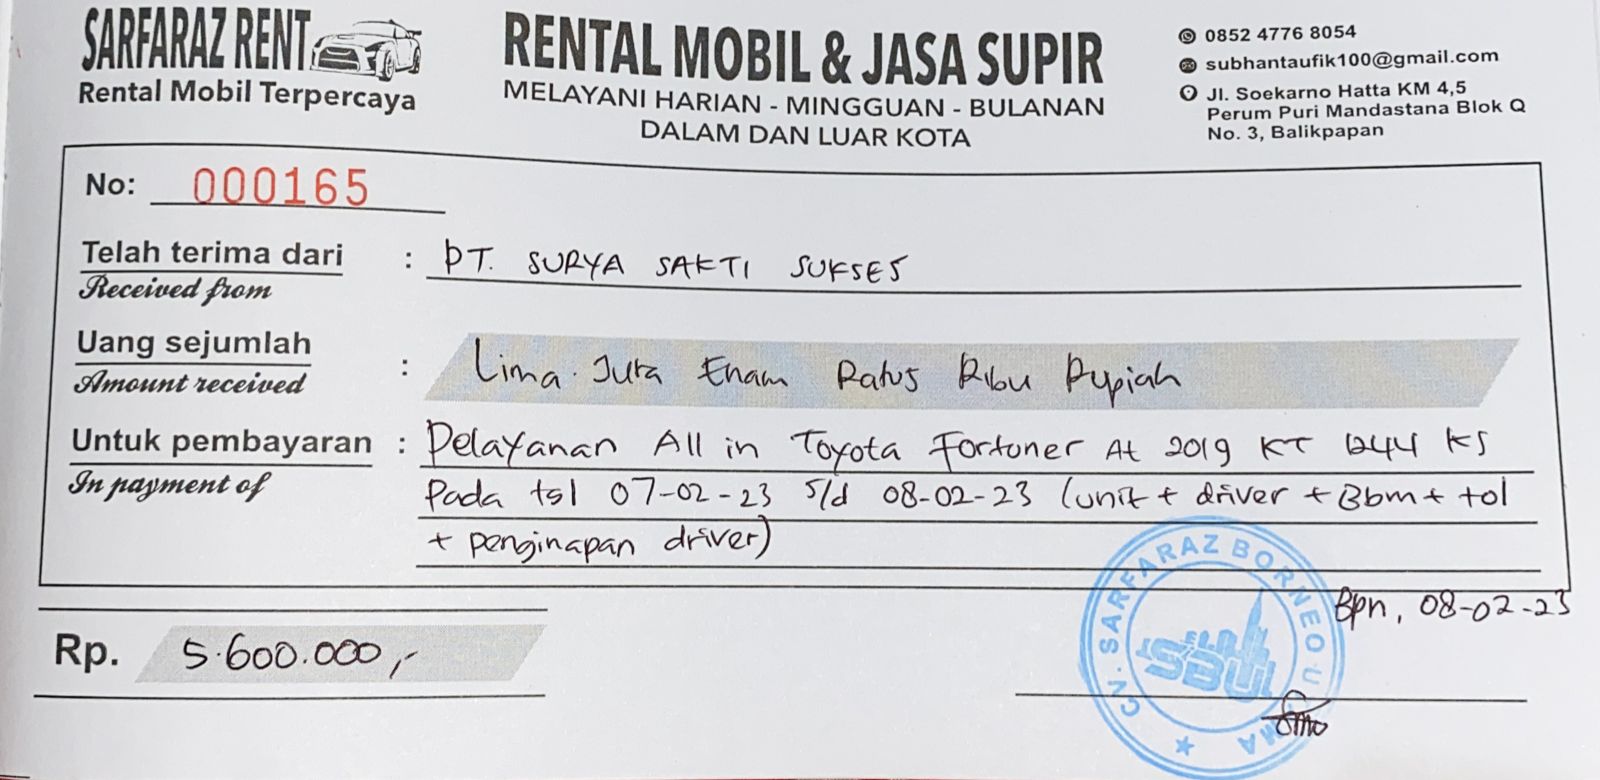 SARFARAZ RENT
Rental Mobil Terpercaya
RENTAL MOBIL & JASA SUPIR
MELAYANI HARIAN - MINGGUAN - BULANAN
DALAM DAN LUAR KOTA
0852 4776 8054
subhantaufik100@gmail.com
Jl. Soekarno Hatta KM 4,5
Perum Puri Mandastana Blok Q
No. 3, Balikpapan
No: 000165
Telah terima dari : PT. SURYA SAKTI SUKSES
Received from
Uang sejumlah : Lima Juta Enam Ratus Ribu Rupiah
Amount received
Untuk pembayaran : Pelayanan All in Toyota Fortuner At 2019 KT 1244 KS
In payment of
Pada tgl 07-02-23 s/d 08-02-23 (unit + driver + Bbm + tol
+ penginapan driver)
Bpn, 08-02-23
Rp. 5.600.000,-
CV. SARFARAZ BORNEO UTAMA
SBU